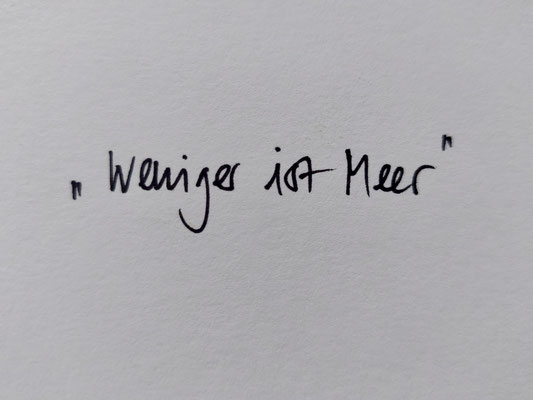 „Weniger ist Meer"